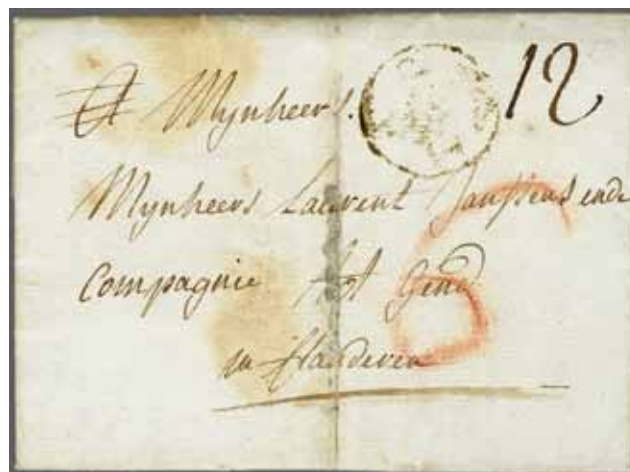 A Mynheers. 12
Mynheers Laurent Janssens ende
Compagnie tot Gend
in flanderen
6